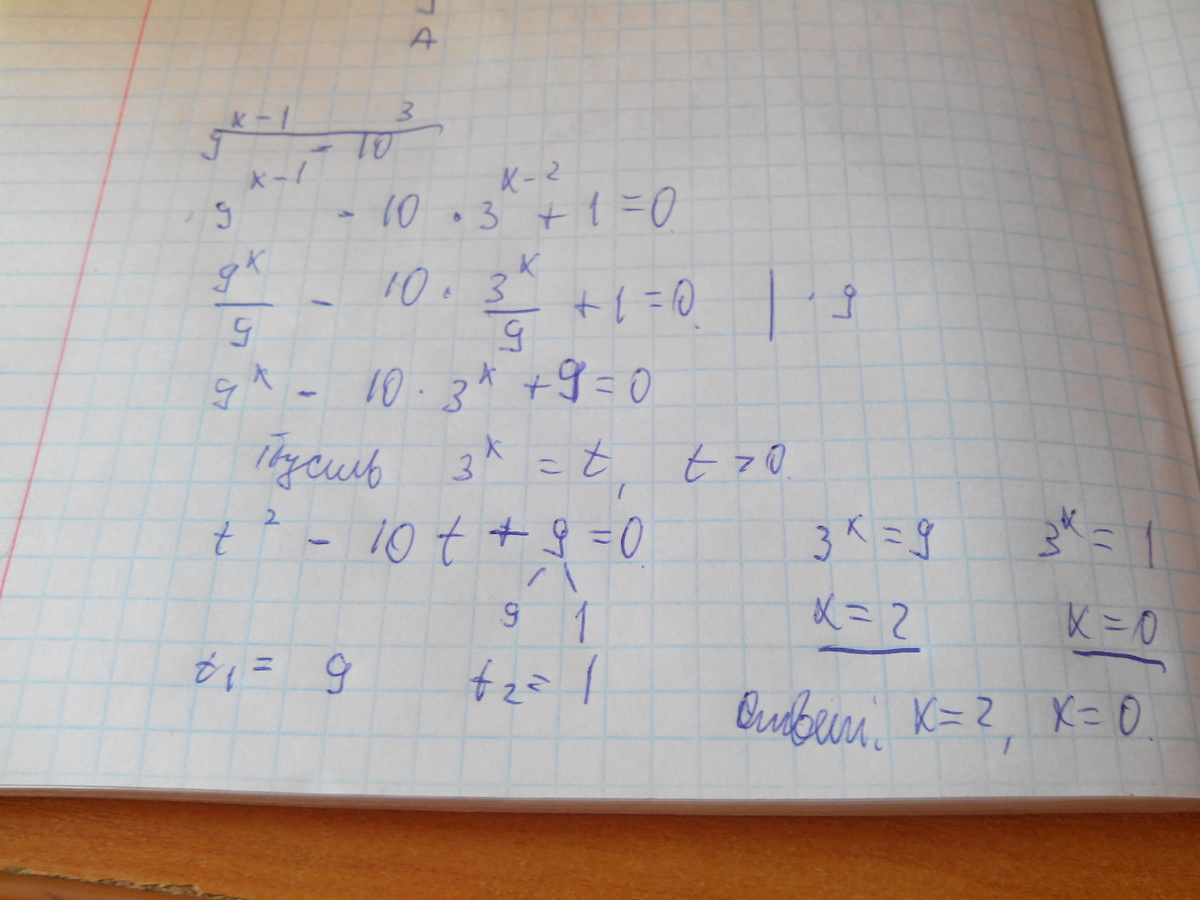 A
9^{x-1} - 10 3
9^{x-1} - 10 · 3^{x-2} + 1 = 0
9^x/9 - 10 · 3^x/9 + 1 = 0 | · 9
9^x - 10 · 3^x + 9 = 0
Пусть 3^x = t, t > 0.
t^2 - 10t + 9 = 0
9 1
t_1 = 9 t_2 = 1
3^x = 9 3^x = 1
x = 2 x = 0
Ответ: x = 2, x = 0.